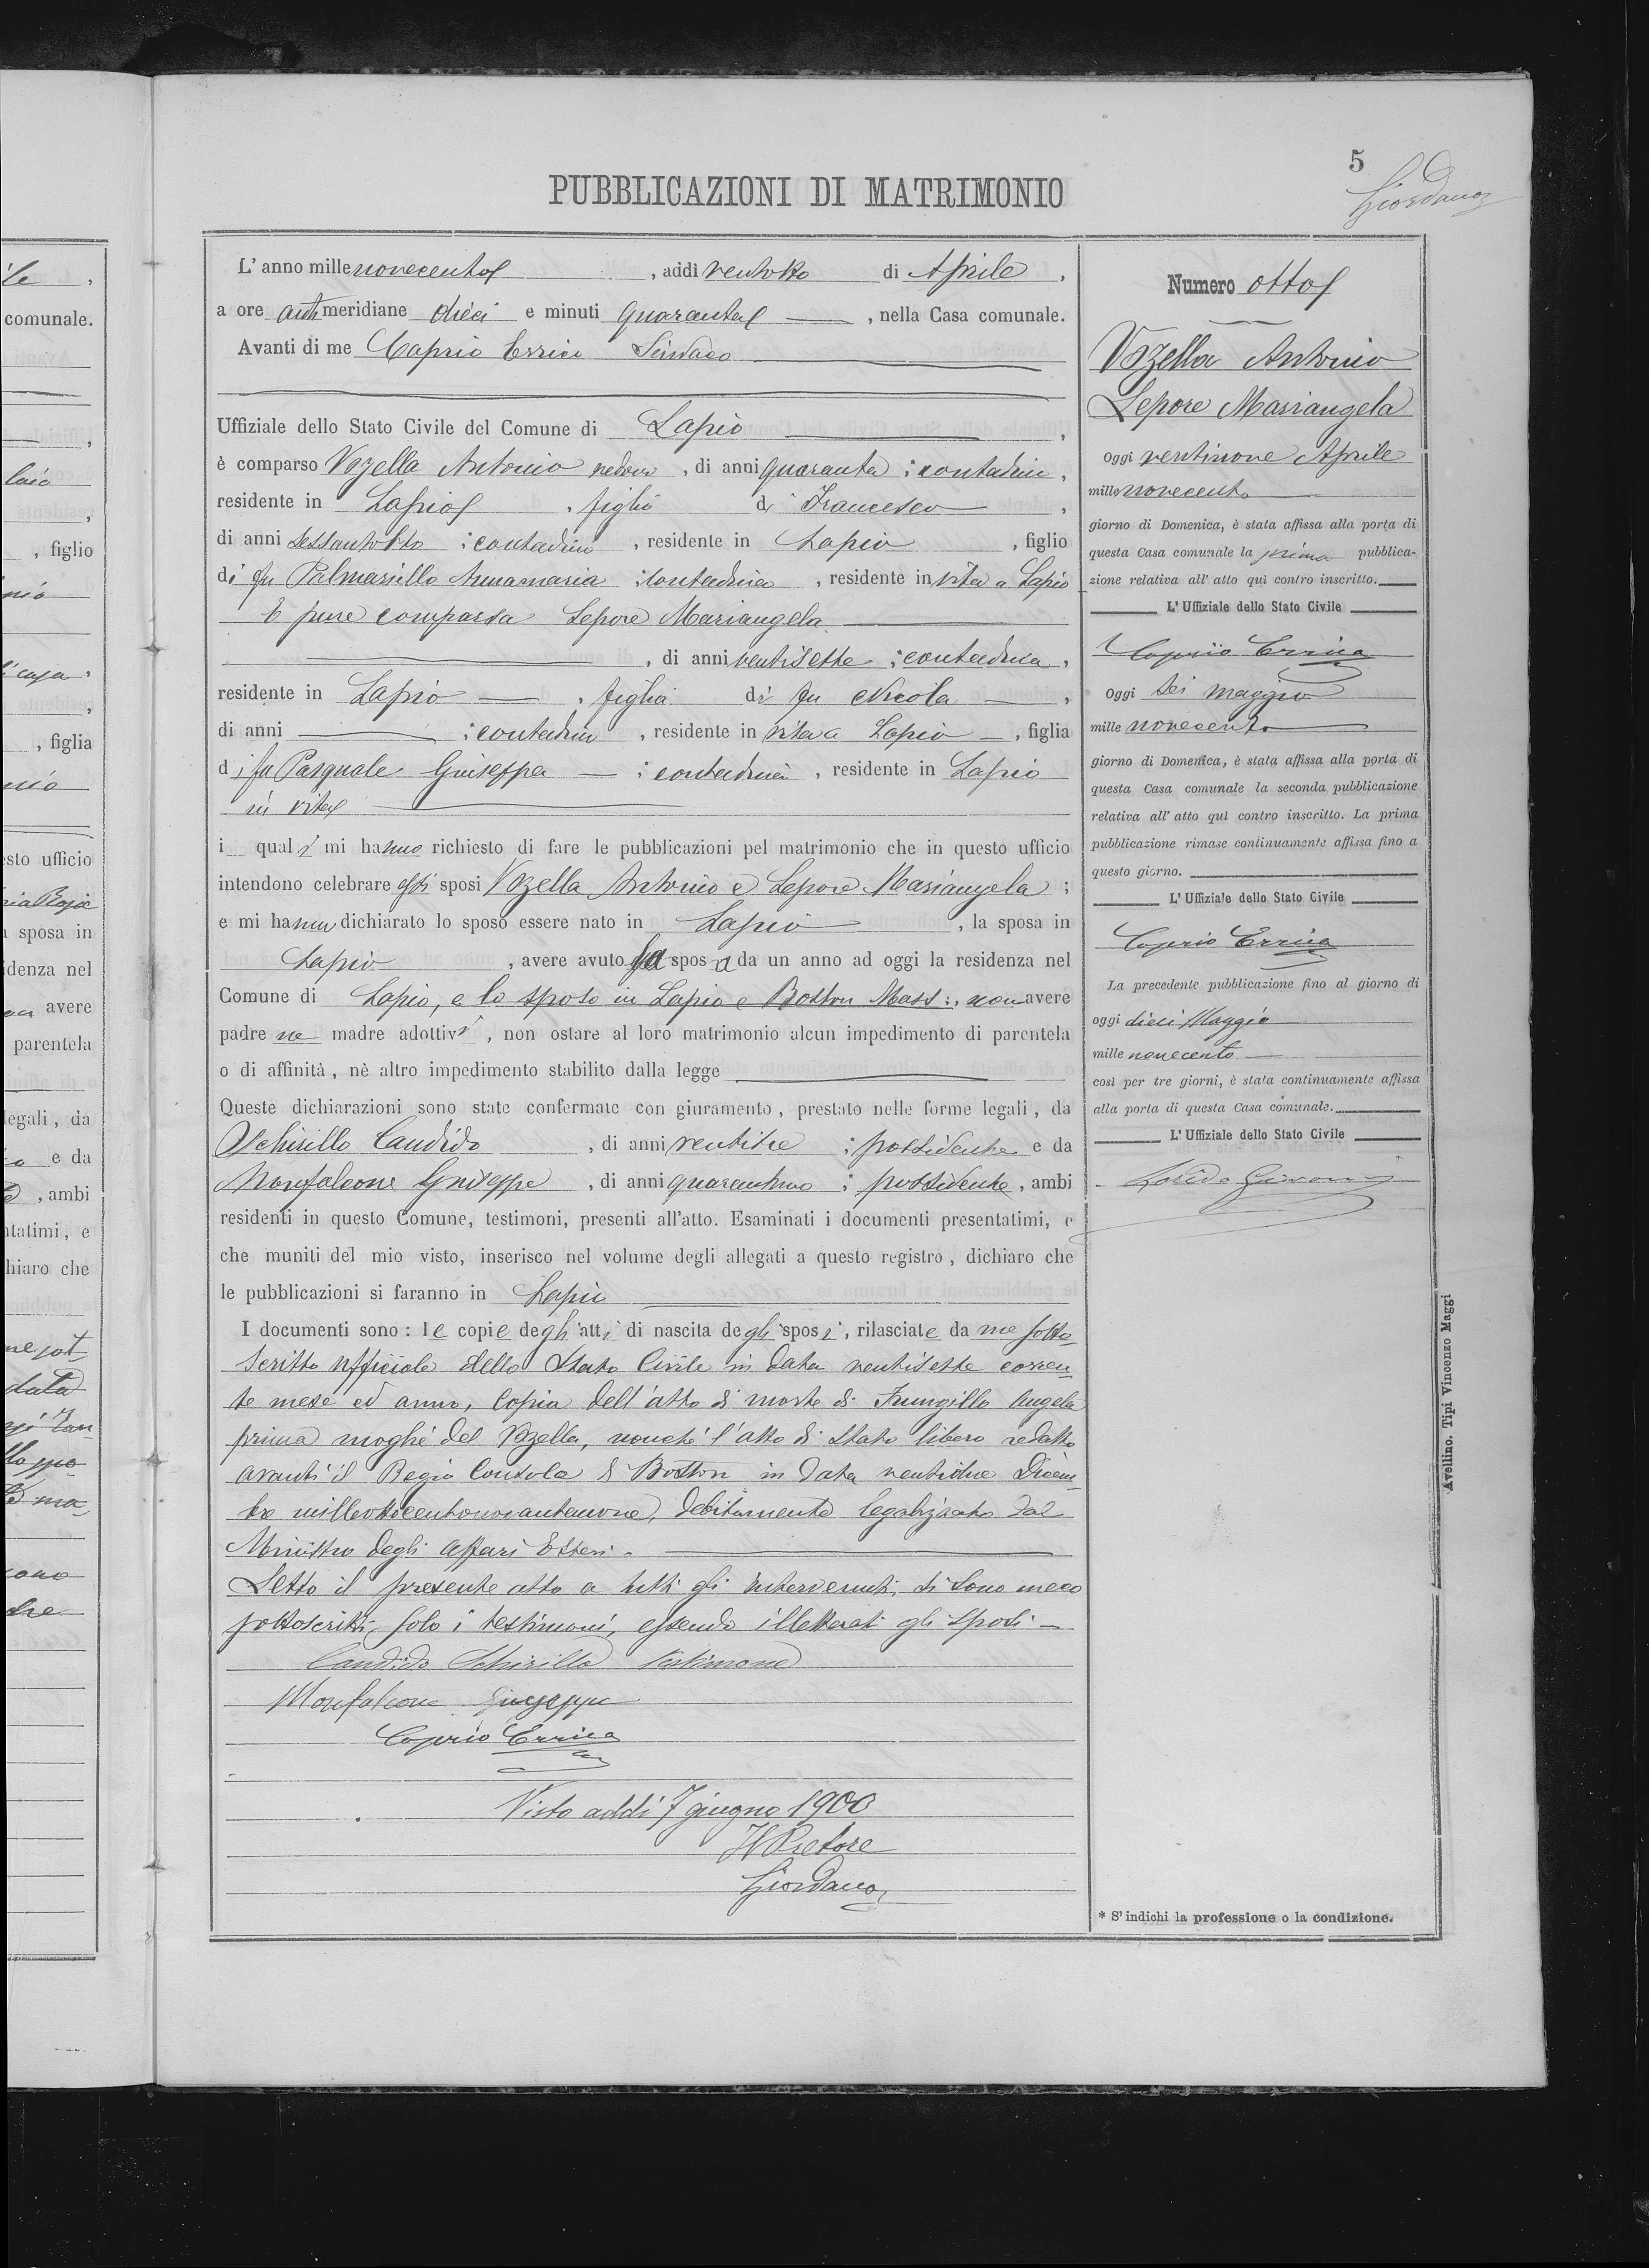 5
Giordano
PUBBLICAZIONI DI MATRIMONIO
L'anno millenovecento, addì ventotto di Aprile,
a ore antimeridiane dieci e minuti quaranta, nella Casa comunale.
Avanti di me Caprio Errico Sindaco
Uffiziale dello Stato Civile del Comune di Lapio,
è comparso Vozella Antonio vedovo, di anni quaranta; contadino,
residente in Lapio, figlio di Francesco,
di anni sessantotto; contadino, residente in Lapio, figlio
di fu Palmariello Annamaria; contadina, residente in vita a Lapio
È pure comparsa Lepore Mariangela
, di anni ventisette; contadina,
residente in Lapio, figlia di fu Nicola,
di anni ; contadino, residente in vita a Lapio, figlia
di fu Pasquale Giuseppa; contadina, residente in Lapio
in vita
i quali mi hanno richiesto di fare le pubblicazioni pel matrimonio che in questo ufficio
intendono celebrare essi sposi Vozella Antonio e Lepore Mariangela;
e mi hanno dichiarato lo sposo essere nato in Lapio, la sposa in
Lapio, avere avuto la sposa da un anno ad oggi la residenza nel
Comune di Lapio, e lo sposo in Lapio e Boston Mass:, non avere
padre ne madre adottivi, non ostare al loro matrimonio alcun impedimento di parentela
o di affinità, nè altro impedimento stabilito dalla legge
Queste dichiarazioni sono state confermate con giuramento, prestato nelle forme legali, da
Schirillo Candido, di anni ventitre; possidente e da
Monfalcone Giuseppe, di anni quarantuno; possidente, ambi
residenti in questo Comune, testimoni, presenti all'atto. Esaminati i documenti presentatimi, e
che muniti del mio visto, inserisco nel volume degli allegati a questo registro, dichiaro che
le pubblicazioni si faranno in Lapio
I documenti sono: le copie degli atti di nascita degli sposi, rilasciate da me sotto
scritto ufficiale dello Stato Civile in data ventisette corren-
te mese ed anno, Copia dell'atto di morte di Frungillo Angela
prima moglie del Vozella, nonchè l'atto di Stato libero redatto
avanti il Regio Console di Boston in data ventidue Dicem-
bre milleottocentonovantanove, debitamente legalizzato dal
Ministro degli Affari Esteri.
Letto il presente atto a tutti gli intervenuti, si sono meco
sottoscritti, solo i testimoni, essendo illetterati gli sposi
Candido Schirillo testimone
Monfalcone Giuseppe
Caprio Errico
Visto addì 7 giugno 1900
Il Pretore
Giordano
Numero otto
Vozella Antonio
Lepore Mariangela
Oggi ventinove Aprile
millenovecento
giorno di Domenica, è stata affissa alla porta di
questa Casa comunale la prima pubblica-
zione relativa all'atto quì contro inscritto.
L'Uffiziale dello Stato Civile
Caprio Errico
Oggi sei maggio
mille novecento
giorno di Domenica, è stata affissa alla porta di
questa Casa comunale la seconda pubblicazione
relativa all'atto quì contro inscritto. La prima
pubblicazione rimase continuamente affissa fino a
questo giorno.
L'Uffiziale dello Stato Civile
Caprio Errico
La precedente pubblicazione fino al giorno di
oggi dieci Maggio
mille novecento
così per tre giorni, è stata continuamente affissa
alla porta di questa Casa comunale.
L'Uffiziale dello Stato Civile
* S'indichi la professione o la condizione.
Avellino. Tipi Vincenzo Maggi
comunale.
, figlio
, figlia
esto ufficio
sposa in
idenza nel
avere
parentela
legali, da
e da
, ambi
ntatimi, e
hiaro che